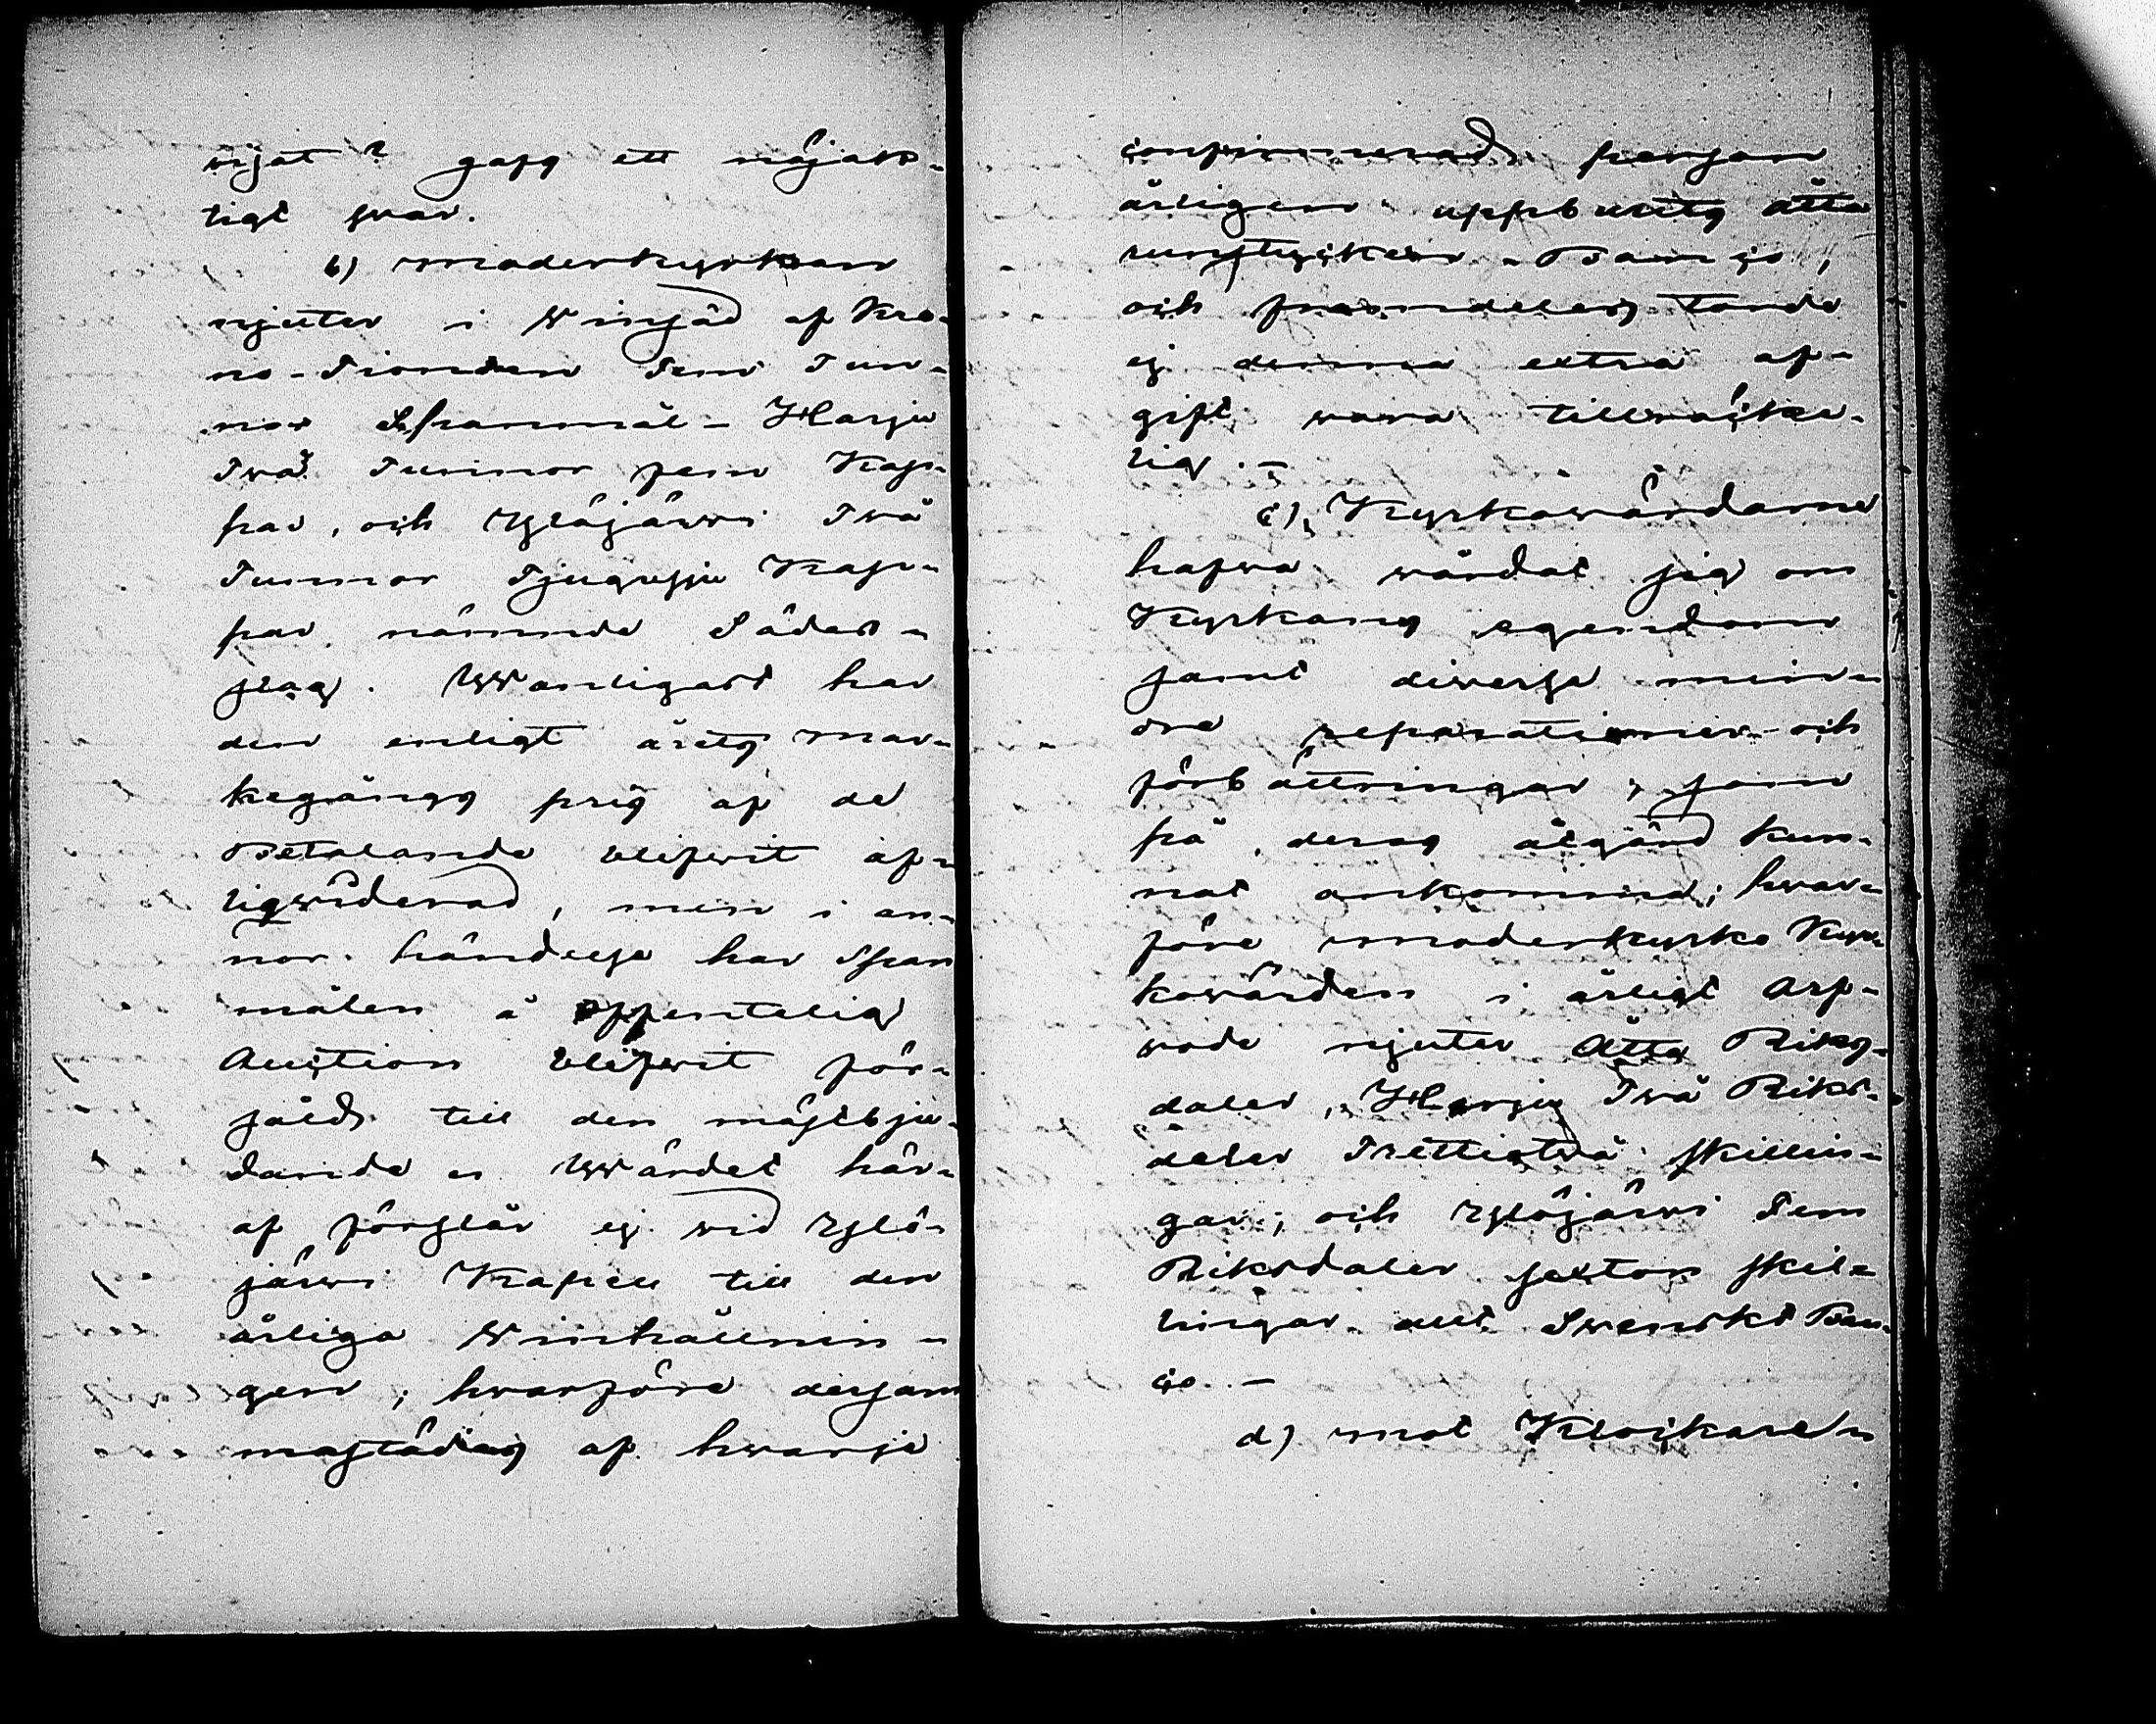 wijat? gafs ett nöjak-
tigt svar.
b) Moderkyrkan
njuter i Winsäd af Kro-
no-Tionden Fem Tun-
nor Spannmål - Harju
Två Tunnor fem Kap-
par, och Ylöjärwi Två
Tunnor Tjugusju Kap-
par nämnde Sädes-
slag. Wanligast har
den enligt årets Mar-
kegångs pris af de
Betalande blifwit af-
liqwiderad, men i an-
nor händelse har Span
målen å offentelig
Auction blifwit för-
såld till den mästbju-
dande. Wärdet här-
af förslår ej wid Ylö-
järwi Kapell till den
årliga Winhållnin-
gen; hwarföre dessom
mastädes af hwarje
confirmerad person
årligen uppburits åtta
runstycken Banco,
och framdeles torde
ej denna extra af-
gift wara tillräcke-
lig. -
c) Kyrkowärdarne
hafwa wårdat sig om
Kyrkans egendom
samt diverse min-
dre reparationer och
förbättringar, som
på deras åtgärd kun-
nat ankomma; hwar-
före Moderkyrko Kyr-
kowärden i årligt Arf-
wode njuter Åtta Riks-
daler, Harju Två Riks-
daler Trettiotvå skillin-
gar; och Ylöjärwi Fem
Riksdaler sexton skil-
lingar allt Swenskt Ban-
co. -
d) Mot Klockaren